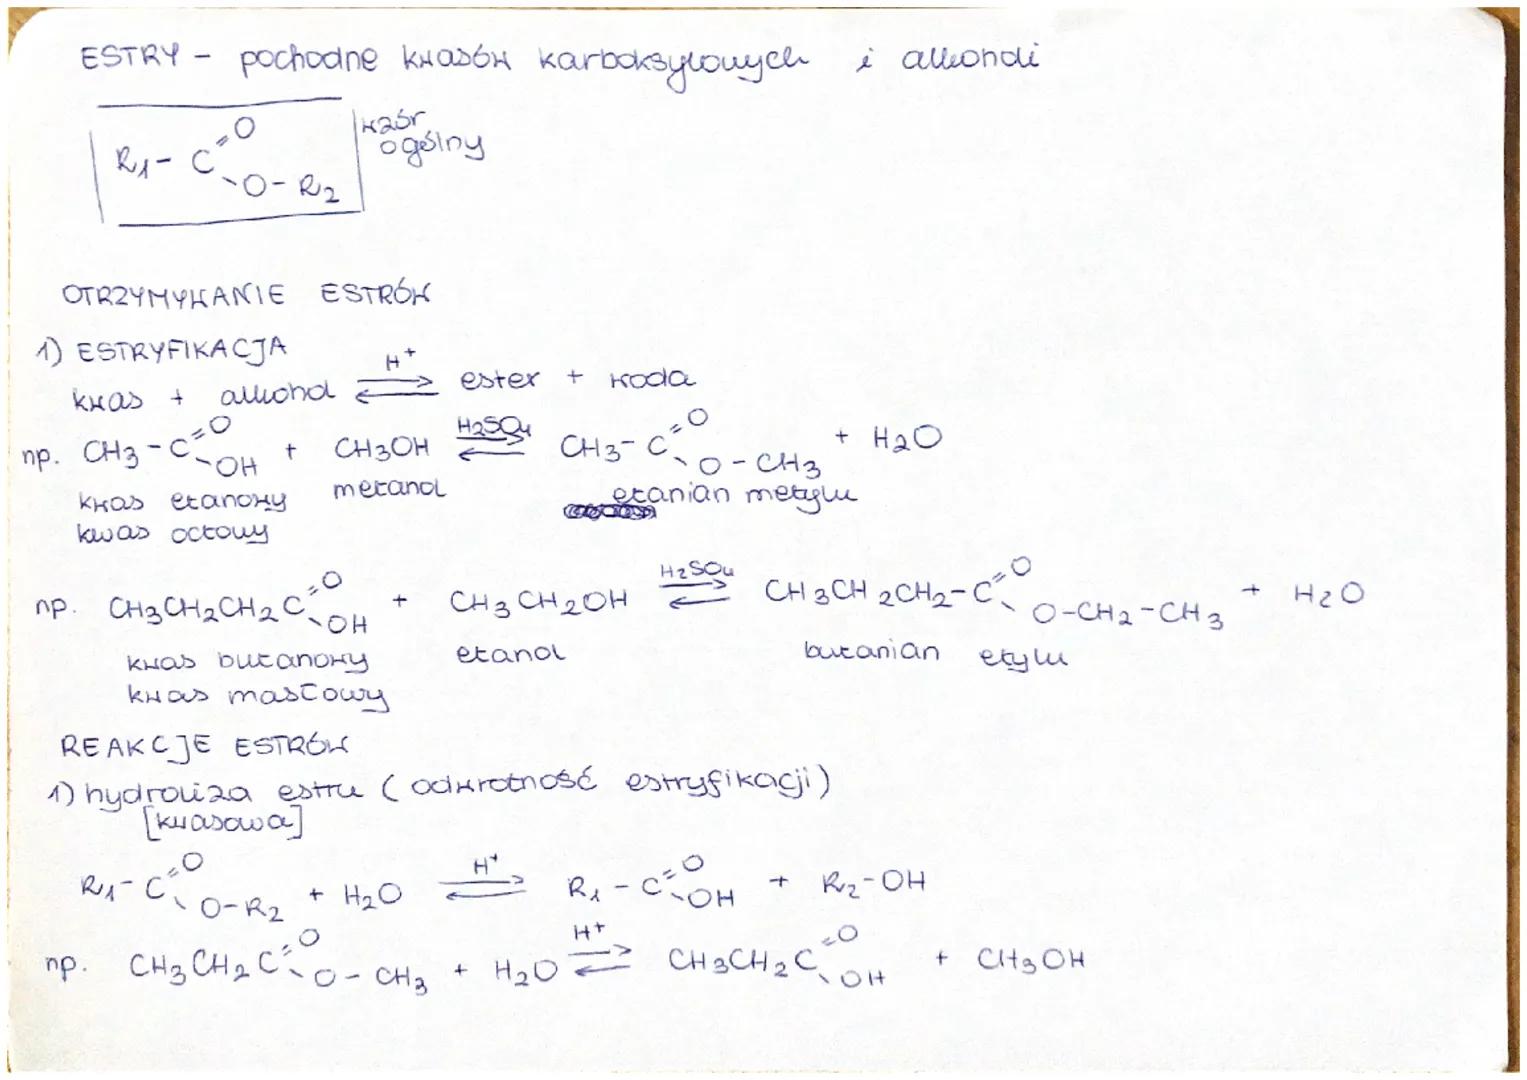 ESTRY - pochodne kwasów karboksylowych i alkoholi
wzór
ogólny
R1-C=O
O-R2
OTRZYMYWANIE ESTRÓW
1) ESTRYFIKACJA
kwas + alkohol ⇌ H+ ester + woda
np. CH3-C=O -OH + CH3OH ⇌ H2SO4 CH3-C=O -O-CH3 + H2O
kwas etanowy metanol etanian metylu
kwas octowy
np. CH3CH2CH2C=O -OH + CH3CH2OH ⇌ H2SO4 CH3CH2CH2-C=O O-CH2-CH3 + H2O
kwas butanowy etanol butanian etylu
kwas masłowy
REAKCJE ESTRÓW
1) hydroliza estru (odwrotność estryfikacji)
[kwasowa]
R1-C=O O-R2 + H2O ⇌ H+ R1-C=O -OH + R2-OH
np. CH3CH2C=O O-CH3 + H2O ⇌ H+ CH3CH2C=O OH + CH3OH